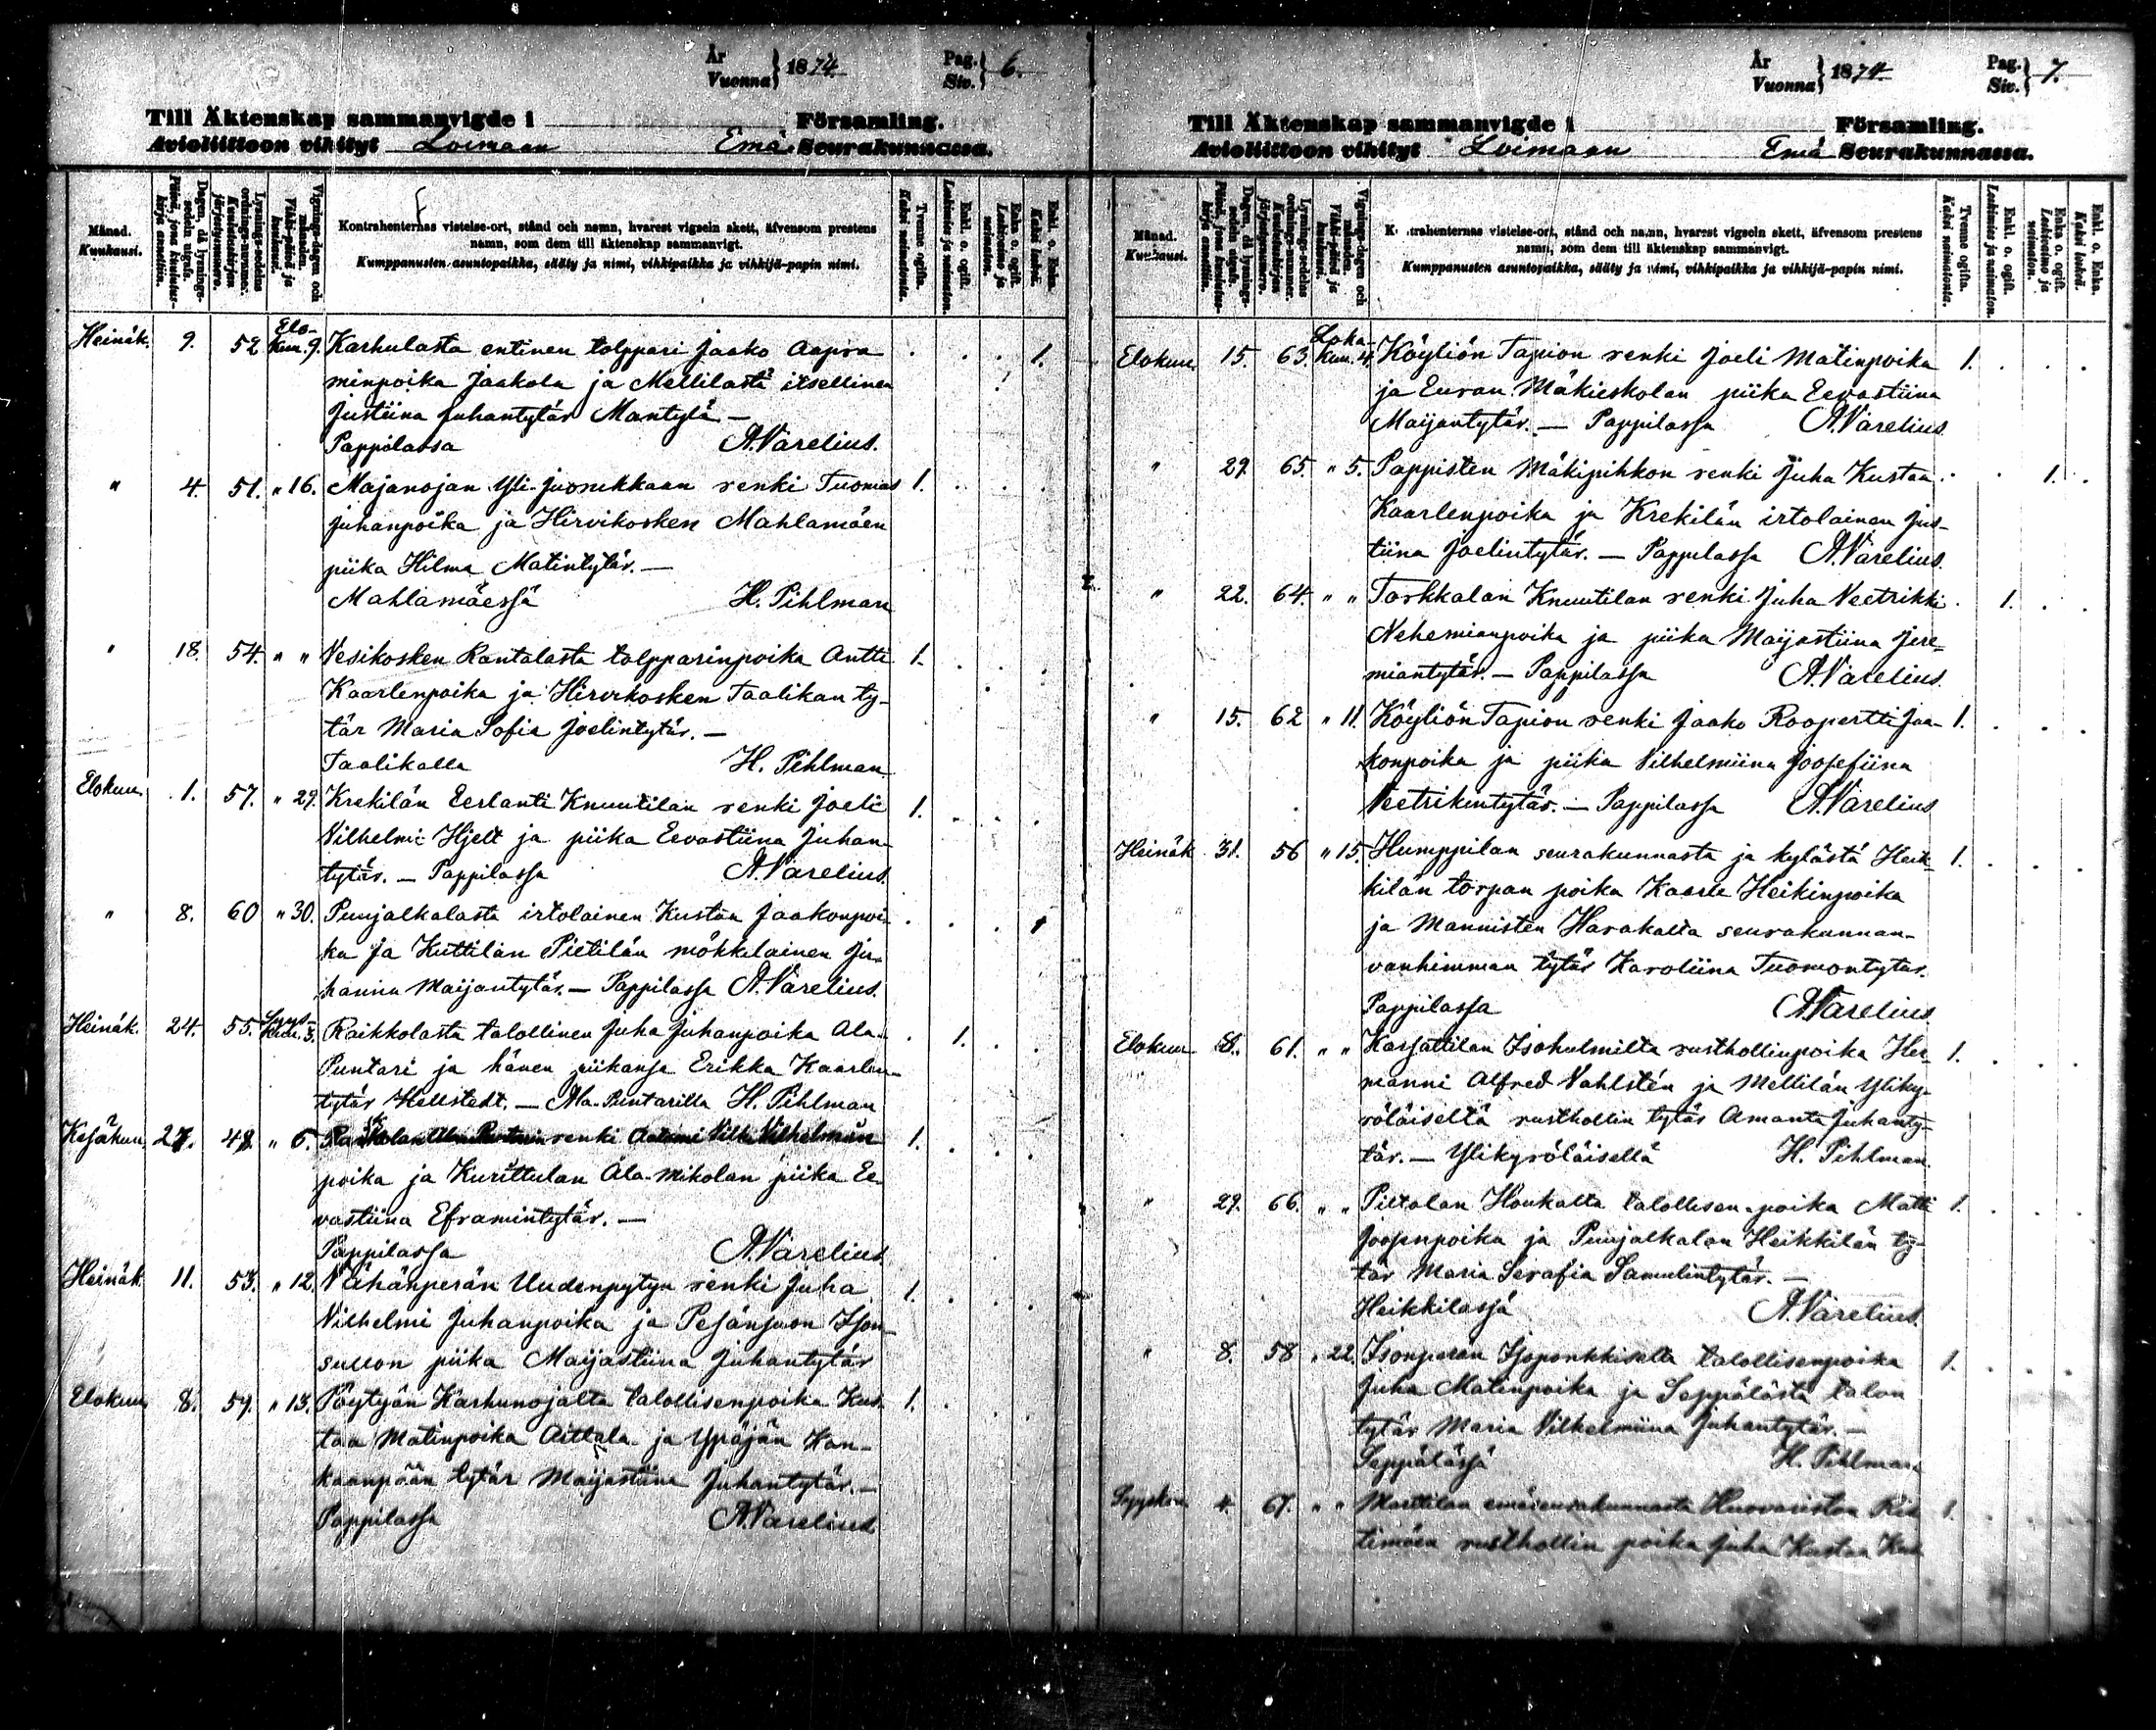 År
Vuonna } 1874
Pag.
Siv. } 6.
Till Äktenskap sammanvigde i Församling.
Avioliittoon vihityt Loimaan Emä Seurakunnassa.
Månad.
Kuukausi.
Dagen, då lysnings-sedeln utgafs.
Päivä, jona kuulutuskirja annettiin.
Lysnings-sedelns ordnings-nummer.
Kuulutuskirjan järjestysnumero.
Vignings-dagen och månaden.
Vihki-päivä ja kuukausi.
Kontrahenternas vistelse-ort, stånd och namn, hvarest vigseln skett, äfvensom prestens
namn, som dem till äktenskap sammanvigt.
Kumppanusten asuntopaikka, sääty ja nimi, vihkipaikka ja vihkijä-papin nimi.
Tvenne ogifta.
Kaksi naimatonta.
Enkl. o. ogift.
Leskimies ja naimaton.
Enka o. ogift
Leskivaimo ja naimaton.
Enkl. o. Enka.
Kaksi leskeä.
Heinäk. 9. 52 Elo-kuu. 9. Karhulasta entinen tolppari Jaako Aapra 1.
minpoika Jaakola ja Mellilästä itsellinen
Justiina Juhantytär Mäntylä —
Pappilassa A. Varelius.
" 4. 51. " 16. Majanojan Yli-Juonikkaan renki Tuomas 1.
Juhanpoika ja Hirvikosken Mahlamäen
piika Hilma Matintytär. —
Mahlamäessä H. Pihlman
" 18. 54. " " Vesikosken Rantalasta tolpparinpoika Antti 1.
Kaarlenpoika ja Hirvikosken Taalikan ty-
tär Maria Sofia Joelintytär. —
Taalikalla H. Pihlman
Elokuu. 1. 57. " 29. Krekilän Eerlanti Knuutilan renki Joeli 1.
Vilhelmi Hjelt ja piika Eevastiina Juhan-
tytär. — Pappilassa A. Varelius.
" 8. 60 " 30. Puujalkalasta irtolainen Kustaa Jaakonpoi- 1
ka ja Kuttilan Pietilän mökkiläinen Ju-
hanna Maijantytär. — Pappilassa A. Varelius.
Heinäk. 24. 55. Syys-kuu. 3. Raikkolasta talollinen Juha Juhanpoika Ala- 1.
Puntari ja hänen piikansa Erikka Kaarlen-
tytär Hellstedt. — Ala-Puntarilla H. Pihlman
Kesäkuu. 27. 48. " 6. renki Aatami Vilhelmin 1.
poika ja Kurittulan Ala-Mikolan piika Ee-
vastiina Eframintytär. —
Pappilassa A. Varelius
Heinäk. 11. 53. " 12. Vähänperän Uudenpytyn renki Juha 1.
Vilhelmi Juhanpoika ja Pesänsuon Ison-
sullon piika Maijastiina Juhantytär
Elokuu. 8. 59. " 13. Pöytyän Karhunojalta talollisenpoika Kus- 1.
taa Matinpoika Aittala ja Ypäjän Kan-
kaanpään tytär Maijastiina Juhantytär. —
Pappilassa A. Varelius
År
Vuonna } 1874
Pag.
Siv. } 7.
Till Äktenskap sammanvigde i Församling.
Avioliittoon vihityt Loimaan Emä Seurakunnassa.
Månad.
Kuukausi.
Dagen, då lysnings-sedeln utgafs.
Päivä, jona kuulutuskirja annettiin.
Lysnings-sedelns ordnings-nummer.
Kuulutuskirjan järjestysnumero.
Vignings-dagen och månaden.
Vihki-päivä ja kuukausi.
Kontrahenternas vistelse-ort, stånd och namn, hvarest vigseln skett, äfvensom prestens
namn, som dem till äktenskap sammanvigt.
Kumppanusten asuntopaikka, sääty ja nimi, vihkipaikka ja vihkijä-papin nimi.
Tvenne ogifta.
Kaksi naimatonta.
Enkl. o. ogift.
Leskimies ja naimaton.
Enka o. ogift
Leskivaimo ja naimaton.
Enkl. o. Enka.
Kaksi leskeä.
Elokuu. 15. 63. Loka-kuu. 4. Köyliön Tapion renki Joeli Matinpoika 1.
ja Euran Mäkieskolan piika Eevastiina
Maijantytär. — Pappilassa A. Varelius.
" 29. 65 " 5. Pappisten Mäkipihkon renki Juha Kustaa 1.
Kaarlenpoika ja Krekilän irtolainen Jus-
tiina Joelintytär. — Pappilassa A. Varelius.
" 22. 64. " " Torkkalan Knuutilan renki Juha Veetrikki 1.
Nehemianpoika ja piika Maijastiina Jere-
miantytär. — Pappilassa A. Varelius.
" 15. 62 " 11. Köyliön Tapion renki Jaako Roopertti Jaa- 1.
konpoika ja piika Vilhelmiina Joosefiina
Veetrikintytär. — Pappilassa A. Varelius
Heinäk 31. 56 " 15. Humppilan seurakunnasta ja kylästä Heik- 1.
kilän torpan poika Kaarle Heikinpoika
ja Mannisten Harakalta seurakunnan-
vanhimman tytär Karoliina Tuomontytär.
Pappilassa A. Varelius.
Elokuu 8. 61. " " Karsattilan Isohulmilta rusthollinpoika Her- 1.
manni Alfred Vahlstén ja Mellilän Yliky-
röläiseltä rusthollin tytär Amanta Juhanty-
tär. — Ylikyröläisellä H. Pihlman.
" 29. 66. " " Piltolan Houkalta talollisen-poika Matti 1.
Joosepinpoika ja Puujalkalan Heikkilän ty-
tär Maria Serafia Samulintytär. —
Heikkilässä A. Varelius.
" 8. 58 " 22. Isonperän Isoponkkiselta talollisenpoika 1.
Juha Matinpoika ja Seppälästä talon
tytär Maria Vilhelmiina Juhantytär. —
Seppälässä H. Pihlman
Syyskuu 4. 67. " " Marttilan emäseurakunnasta 1.
rusthollin poika Juha Kustaa